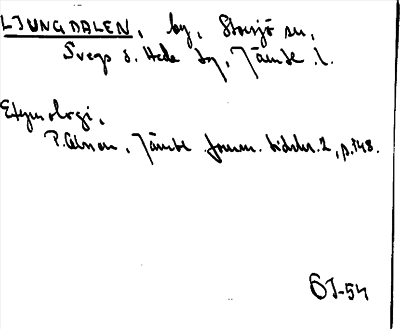 LJUNGDALEN, by, Storsjö sn,
Svegs o. Hede tg, Jämtl. l.
Etymologi,
P. Olsson, Jämtl. fornm. tidskr. 2, p. 148.
ÖJ-54